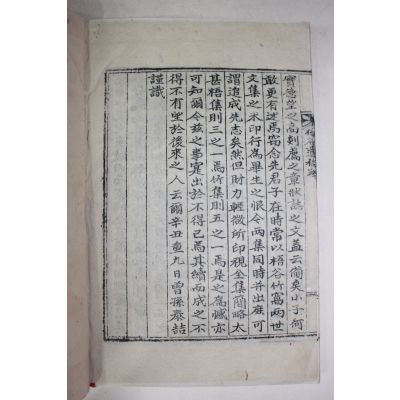 寶德堂之高剞劂之章狀誌之文蓋云備矣小子何
敢更有述焉竊念先君子在時常以梧谷竹窩兩世
文集之未印行爲畢生之恨今兩集同時並出庶可
謂追成先志矣然但財力輕微所印視全集簡略太
甚梧集則三之一焉竹集則五之一焉是之爲憾亦
可知爾今玆之事寔出於不得已焉其續而成之不
得不有望於後來之人云爾辛丑重九日曾孫泰喆
謹識